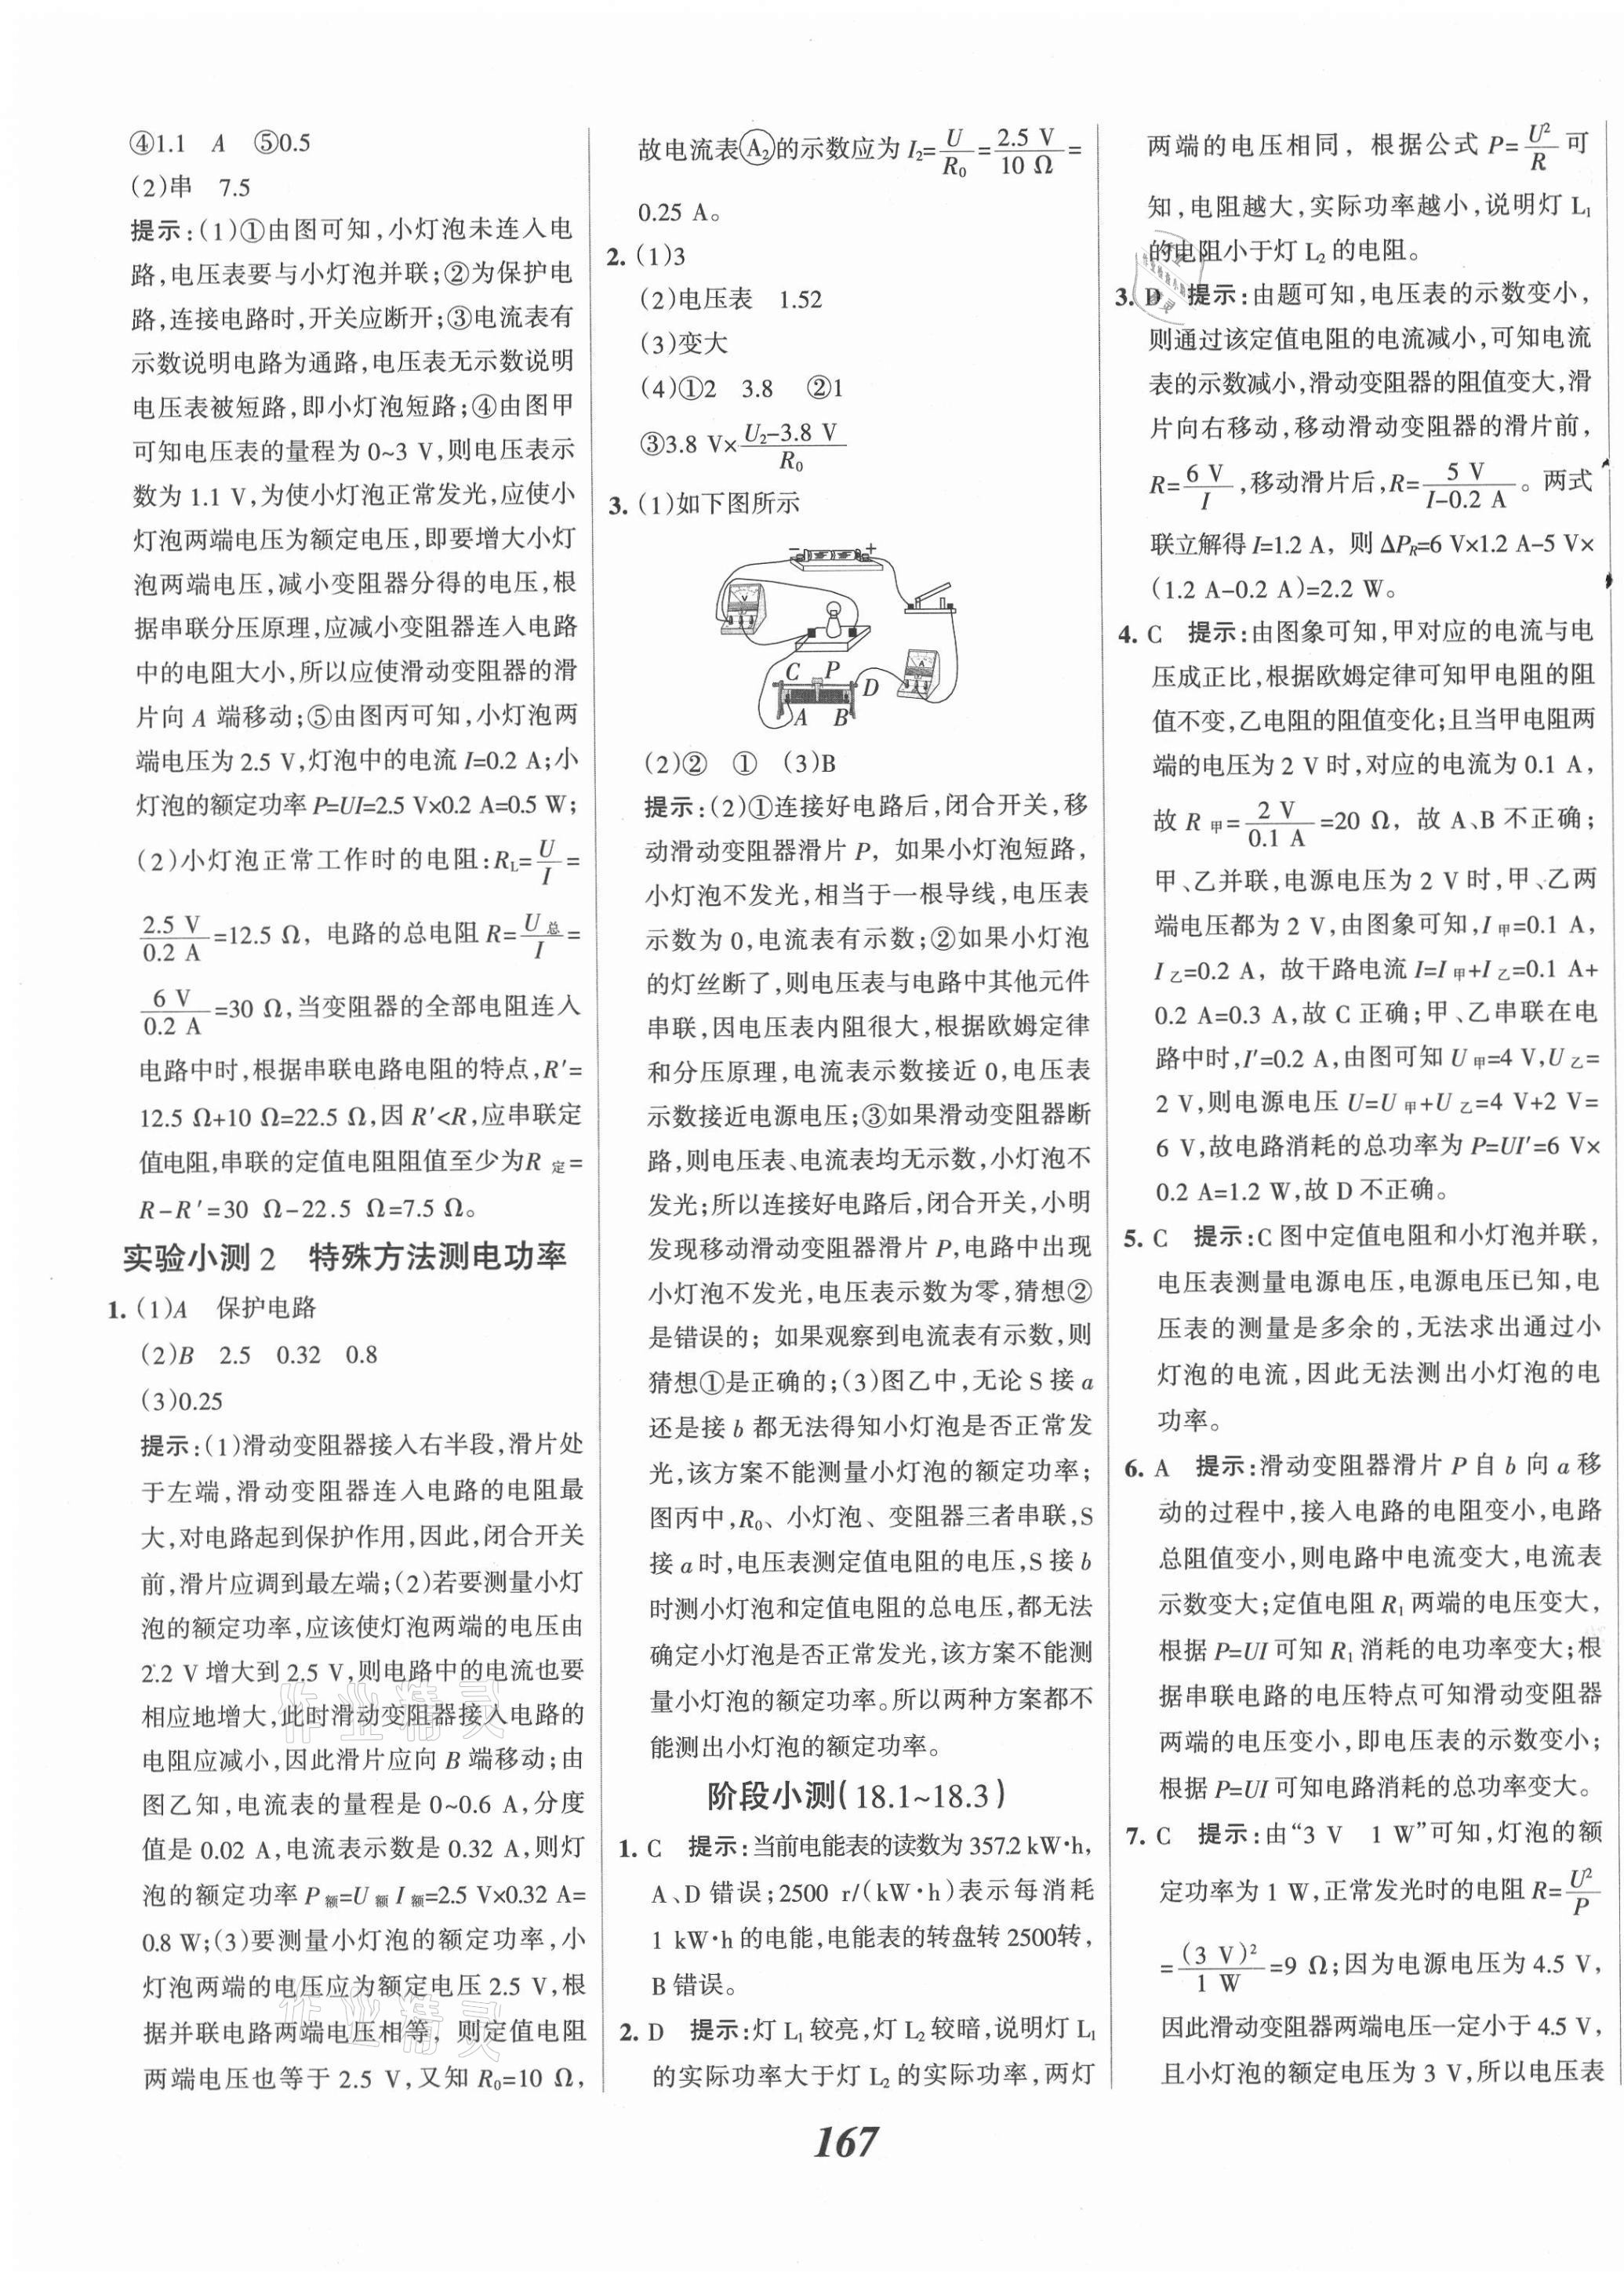 ④1.1　A　⑤0.5
(2)串　7.5
提示:(1)①由图可知,小灯泡未连入电
路,电压表要与小灯泡并联;②为保护电
路,连接电路时,开关应断开;③电流表有
示数说明电路为通路,电压表无示数说明
电压表被短路,即小灯泡短路;④由图甲
可知电压表的量程为 0~3 V,则电压表示
数为 1.1 V,为使小灯泡正常发光,应使小
灯泡两端电压为额定电压,即要增大小灯
泡两端电压,减小变阻器分得的电压,根
据串联分压原理,应减小变阻器连入电路
中的电阻大小,所以应使滑动变阻器的滑
片向 A 端移动;⑤由图丙可知,小灯泡两
端电压为 2.5 V,灯泡中的电流 I=0.2 A;小
灯泡的额定功率 P=UI=2.5 V×0.2 A=0.5 W;
(2)小灯泡正常工作时的电阻:R_L=U/I=
2.5 V/0.2 A=12.5 Ω, 电路的总电阻 R=U总/I=
6 V/0.2 A=30 Ω,当变阻器的全部电阻连入
电路中时,根据串联电路电阻的特点,R′=
12.5 Ω+10 Ω=22.5 Ω,因 R′<R,应串联定
值电阻,串联的定值电阻阻值至少为R定=
R-R′=30 Ω-22.5 Ω=7.5 Ω。
实验小测 2　特殊方法测电功率
1. (1)A　保护电路
(2)B　2.5　0.32　0.8
(3)0.25
提示:(1)滑动变阻器接入右半段,滑片处
于左端,滑动变阻器连入电路的电阻最
大,对电路起到保护作用,因此,闭合开关
前,滑片应调到最左端;(2)若要测量小灯
泡的额定功率,应该使灯泡两端的电压由
2.2 V 增大到 2.5 V,则电路中的电流也要
相应地增大,此时滑动变阻器接入电路的
电阻应减小,因此滑片应向 B 端移动;由
图乙知,电流表的量程是 0~0.6 A,分度
值是 0.02 A,电流表示数是 0.32 A,则灯
泡的额定功率 P额=U额I额=2.5 V×0.32 A=
0.8 W;(3)要测量小灯泡的额定功率,小
灯泡两端的电压应为额定电压 2.5 V,根
据并联电路两端电压相等, 则定值电阻
两端电压也等于 2.5 V,又知 R₀=10 Ω,
故电流表A₂的示数应为 I₂=U/R₀=2.5 V/10 Ω=
0.25 A。
2. (1)3
(2)电压表　1.52
(3)变大
(4)①2　3.8　②1
③3.8 V×(U₂-3.8 V)/R₀
3. (1)如下图所示
- +
V
A
C P D
A B
(2)②　①　(3)B
提示:(2)①连接好电路后,闭合开关,移
动滑动变阻器滑片 P, 如果小灯泡短路,
小灯泡不发光,相当于一根导线,电压表
示数为 0,电流表有示数;②如果小灯泡
的灯丝断了,则电压表与电路中其他元件
串联,因电压表内阻很大,根据欧姆定律
和分压原理,电流表示数接近 0,电压表
示数接近电源电压;③如果滑动变阻器断
路,则电压表、电流表均无示数,小灯泡不
发光;所以连接好电路后,闭合开关,小明
发现移动滑动变阻器滑片 P,电路中出现
小灯泡不发光,电压表示数为零,猜想②
是错误的; 如果观察到电流表有示数,则
猜想①是正确的;(3)图乙中,无论 S 接 a
还是接 b 都无法得知小灯泡是否正常发
光,该方案不能测量小灯泡的额定功率;
图丙中,R₀、小灯泡、变阻器三者串联,S
接 a 时,电压表测定值电阻的电压,S 接 b
时测小灯泡和定值电阻的总电压,都无法
确定小灯泡是否正常发光,该方案不能测
量小灯泡的额定功率。所以两种方案都不
能测出小灯泡的额定功率。
阶段小测(18.1~18.3)
1. C　提示:当前电能表的读数为 357.2 kW·h,
A、D 错误;2500 r/(kW·h)表示每消耗
1 kW·h 的电能,电能表的转盘转 2500转,
B 错误。
2. D　提示:灯 L₁ 较亮,灯 L₂ 较暗,说明灯 L₁
的实际功率大于灯 L₂ 的实际功率,两灯
两端的电压相同, 根据公式 P=U²/R 可
知,电阻越大,实际功率越小,说明灯 L₁
的电阻小于灯 L₂ 的电阻。
3. D　提示:由题可知,电压表的示数变小,
则通过该定值电阻的电流减小,可知电流
表的示数减小,滑动变阻器的阻值变大,滑
片向右移动,移动滑动变阻器的滑片前,
R=6 V/I,移动滑片后,R=5 V/(I-0.2 A)。两式
联立解得 I=1.2 A, 则 ΔP_R=6 V×1.2 A-5 V×
(1.2 A-0.2 A)=2.2 W。
4. C　提示:由图象可知,甲对应的电流与电
压成正比,根据欧姆定律可知甲电阻的阻
值不变,乙电阻的阻值变化;且当甲电阻两
端的电压为 2 V 时,对应的电流为 0.1 A,
故 R甲=2 V/0.1 A=20 Ω, 故 A、B 不正确;
甲、乙并联,电源电压为 2 V 时,甲、乙两
端电压都为 2 V,由图象可知,I甲=0.1 A,
I乙=0.2 A, 故干路电流 I=I甲+I乙=0.1 A+
0.2 A=0.3 A,故 C 正确;甲、乙串联在电
路中时,I′=0.2 A,由图可知 U甲=4 V,U乙=
2 V,则电源电压 U=U甲+U乙=4 V+2 V=
6 V,故电路消耗的总功率为 P=UI′=6 V×
0.2 A=1.2 W,故 D 不正确。
5. C　提示:C 图中定值电阻和小灯泡并联,
电压表测量电源电压,电源电压已知,电
压表的测量是多余的,无法求出通过小
灯泡的电流,因此无法测出小灯泡的电
功率。
6. A　提示:滑动变阻器滑片 P 自 b 向 a 移
动的过程中,接入电路的电阻变小,电路
总阻值变小,则电路中电流变大,电流表
示数变大;定值电阻 R₁ 两端的电压变大,
根据 P=UI 可知 R₁ 消耗的电功率变大;根
据串联电路的电压特点可知滑动变阻器
两端的电压变小,即电压表的示数变小;
根据 P=UI 可知电路消耗的总功率变大。
7. C　提示:由“3 V　1 W”可知,灯泡的额
定功率为 1 W,正常发光时的电阻 R=U²/P
=(3 V)²/1 W=9 Ω;因为电源电压为 4.5 V,
因此滑动变阻器两端电压一定小于 4.5 V,
且小灯泡的额定电压为 3 V,所以电压表
作业精灵
作业精灵
167